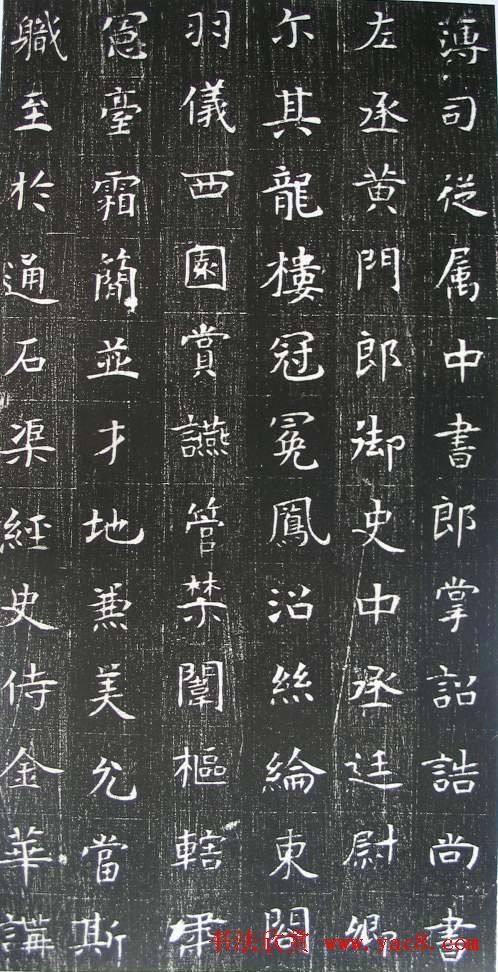 薄司從属中書郎掌詔誥尚書
左丞黄門郎御史中丞廷尉卿
尒其龍樓冠冕鳳沼絲綸東閤
羽儀西園賞讌管禁闈樞轄
憲臺霜簡並才地兼美允當斯
職至於通石渠經史侍金華講
书法欣赏 www.yac8.com